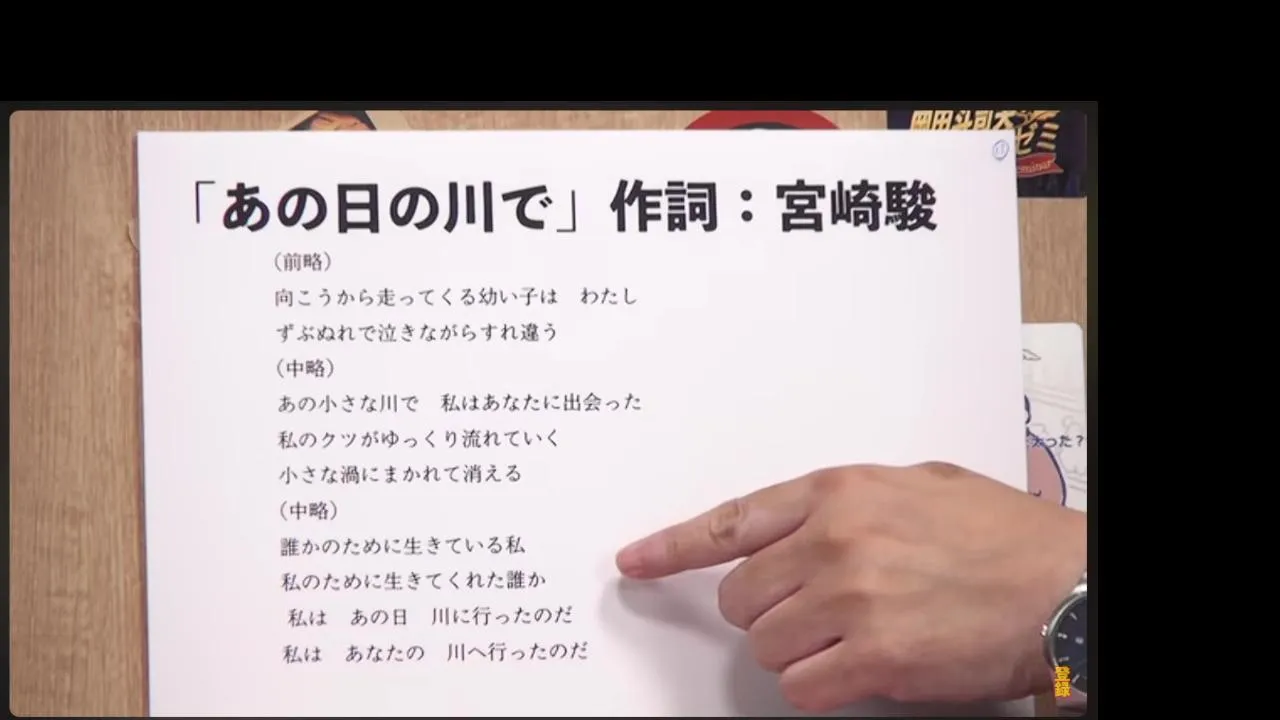 「あの日の川で」作詞：宮崎駿
（前略）
向こうから走ってくる幼い子は　わたし
ずぶぬれで泣きながらすれ違う
（中略）
あの小さな川で　私はあなたに出会った
私のクツがゆっくり流れていく
小さな渦にまかれて消える
（中略）
誰かのために生きている私
私のために生きてくれた誰か
私は　あの日　川に行ったのだ
私は　あなたの　川へ行ったのだ
岡田斗司夫
ゼミ
った？
登録